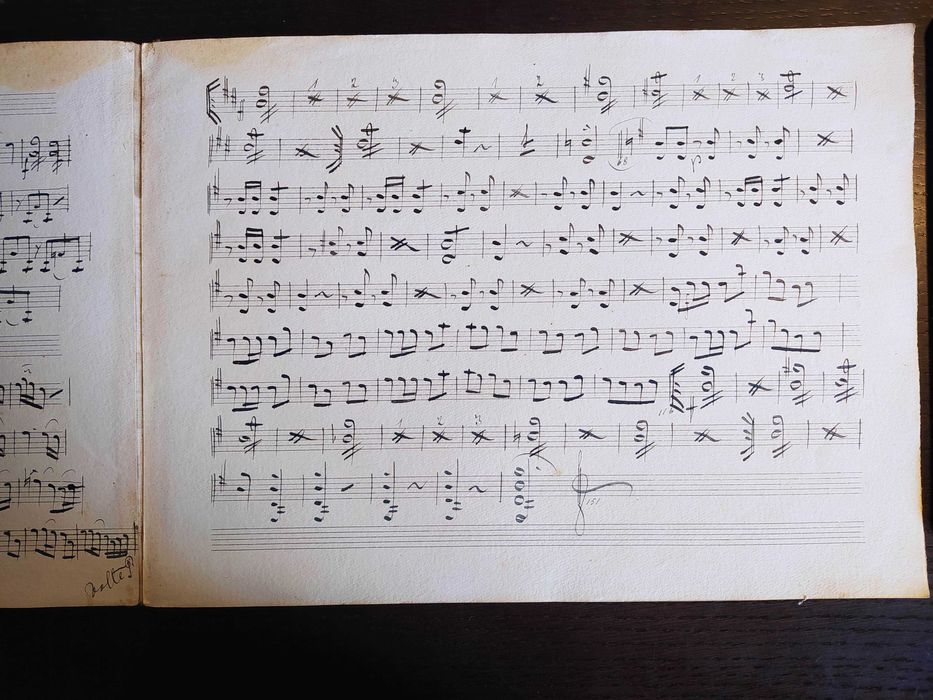 1 2 3 1 2 1 2 3
68
p
116
1 2 3
151
volte